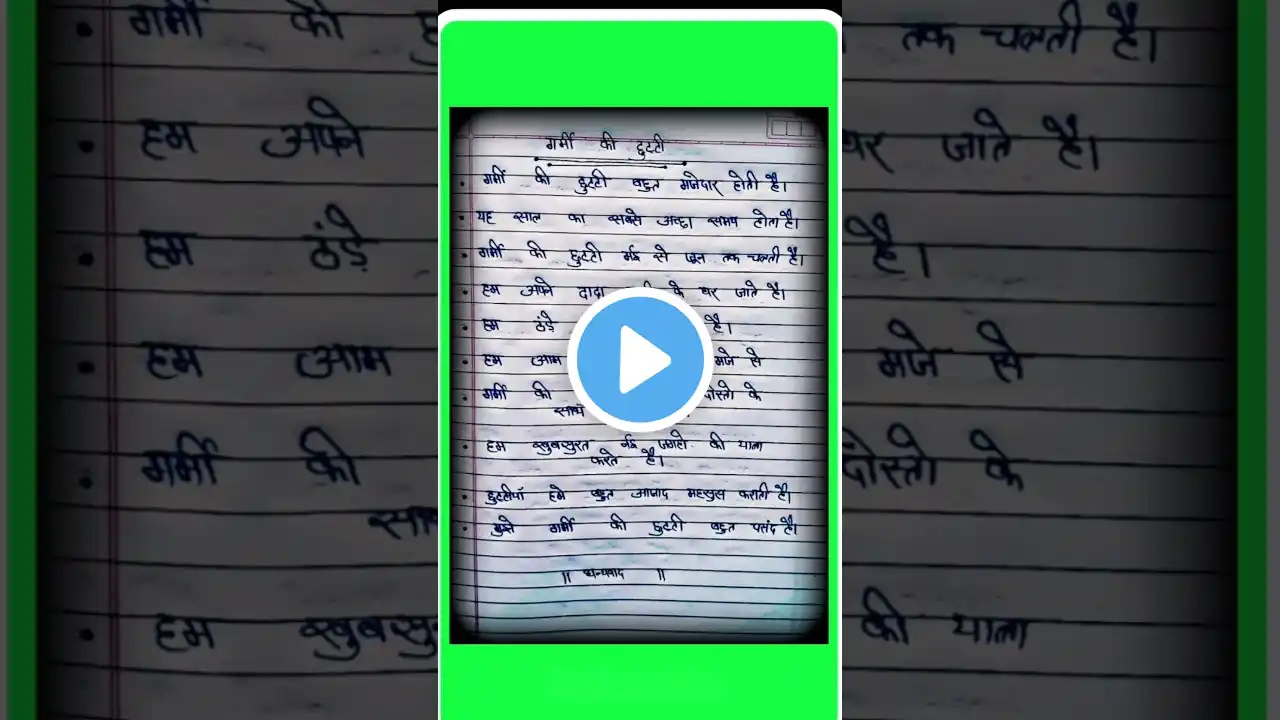 गर्मी की छुट्टी
• गर्मी की छुट्टी बहुत मजेदार होती है।
• यह साल का सबसे अच्छा समय होता है।
• गर्मी की छुट्टी मई से जून तक चलती है।
• हम अपने दादा के घर जाते है।
• हम ठंडे है।
• हम आम मजे से
• गर्मी की दोस्तो के
साथ
• हम खुबसुरत नई जगहो की यात्रा
करते है।
• छुट्टीयाँ हमे बहुत आजाद महसुस कराती है।
• मुझे गर्मी की छुट्टी बहुत पसंद है।
|| धन्यवाद ||